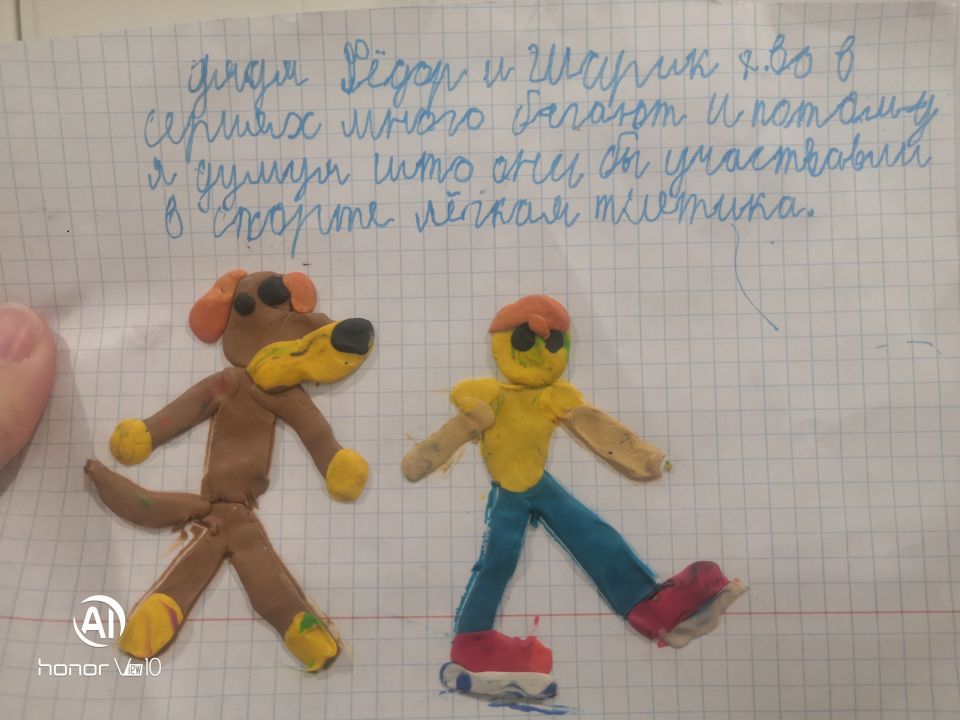 дядя Фёдор и Шарик х.во в
сериях много багают и потому
я думуя што они бы участвавли
в спорте лёгкая тлетика.
AI
honor View10